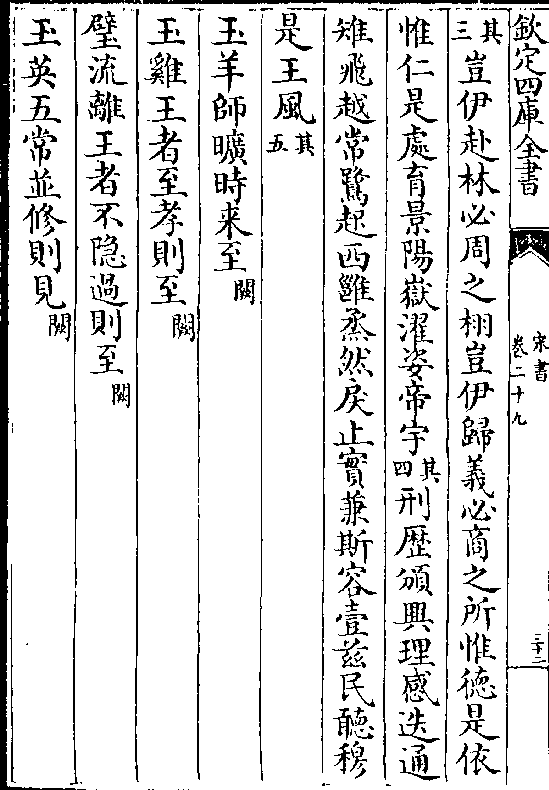 欽定四庫全書
宋書
卷二十九
三十二
其三豈伊赴林必周之栩豈伊歸義必商之所惟德是依
惟仁是處育景陽嶽濯姿帝宇其四刑歷頒興理感迭通
雉飛越常鷺起西雝烝然戾止實兼斯容壹茲民聽穆
是王風其五
玉羊師曠時来至闕
玉雞王者至孝則至闕
璧流離王者不隐過則至闕
玉英五常並修則見闕